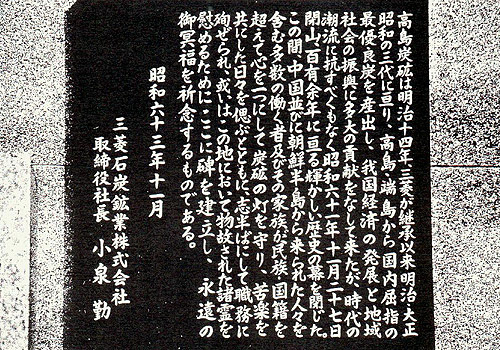 高島炭砿は明治十四年、三菱が継承以来明治、大正
昭和の三代に亘り、高島・端島から国内屈指の
最優良炭を産出し、我国経済の発展と地域
社会の振興に多大の貢献をなして来たが、時代の
潮流に抗すべくもなく昭和六十一年十一月二十七日
閉山、百有余年に亘る輝かしい歴史の幕を閉じた。
この間、中国並びに朝鮮半島から来られた人々を
含む多数の働く者及びその家族が民族・国籍を
超えて心を一つにして炭砿の灯を守り、苦楽を
共にした日々を偲ぶとともに、志半ばにして職務に
殉ぜられ、或いはこの地において物故された諸霊を
慰めるために、ここに碑を建立し、永遠の
御冥福を祈念するものである。
昭和六十三年十一月
三菱石炭鉱業株式会社
取締役社長 小泉 勤